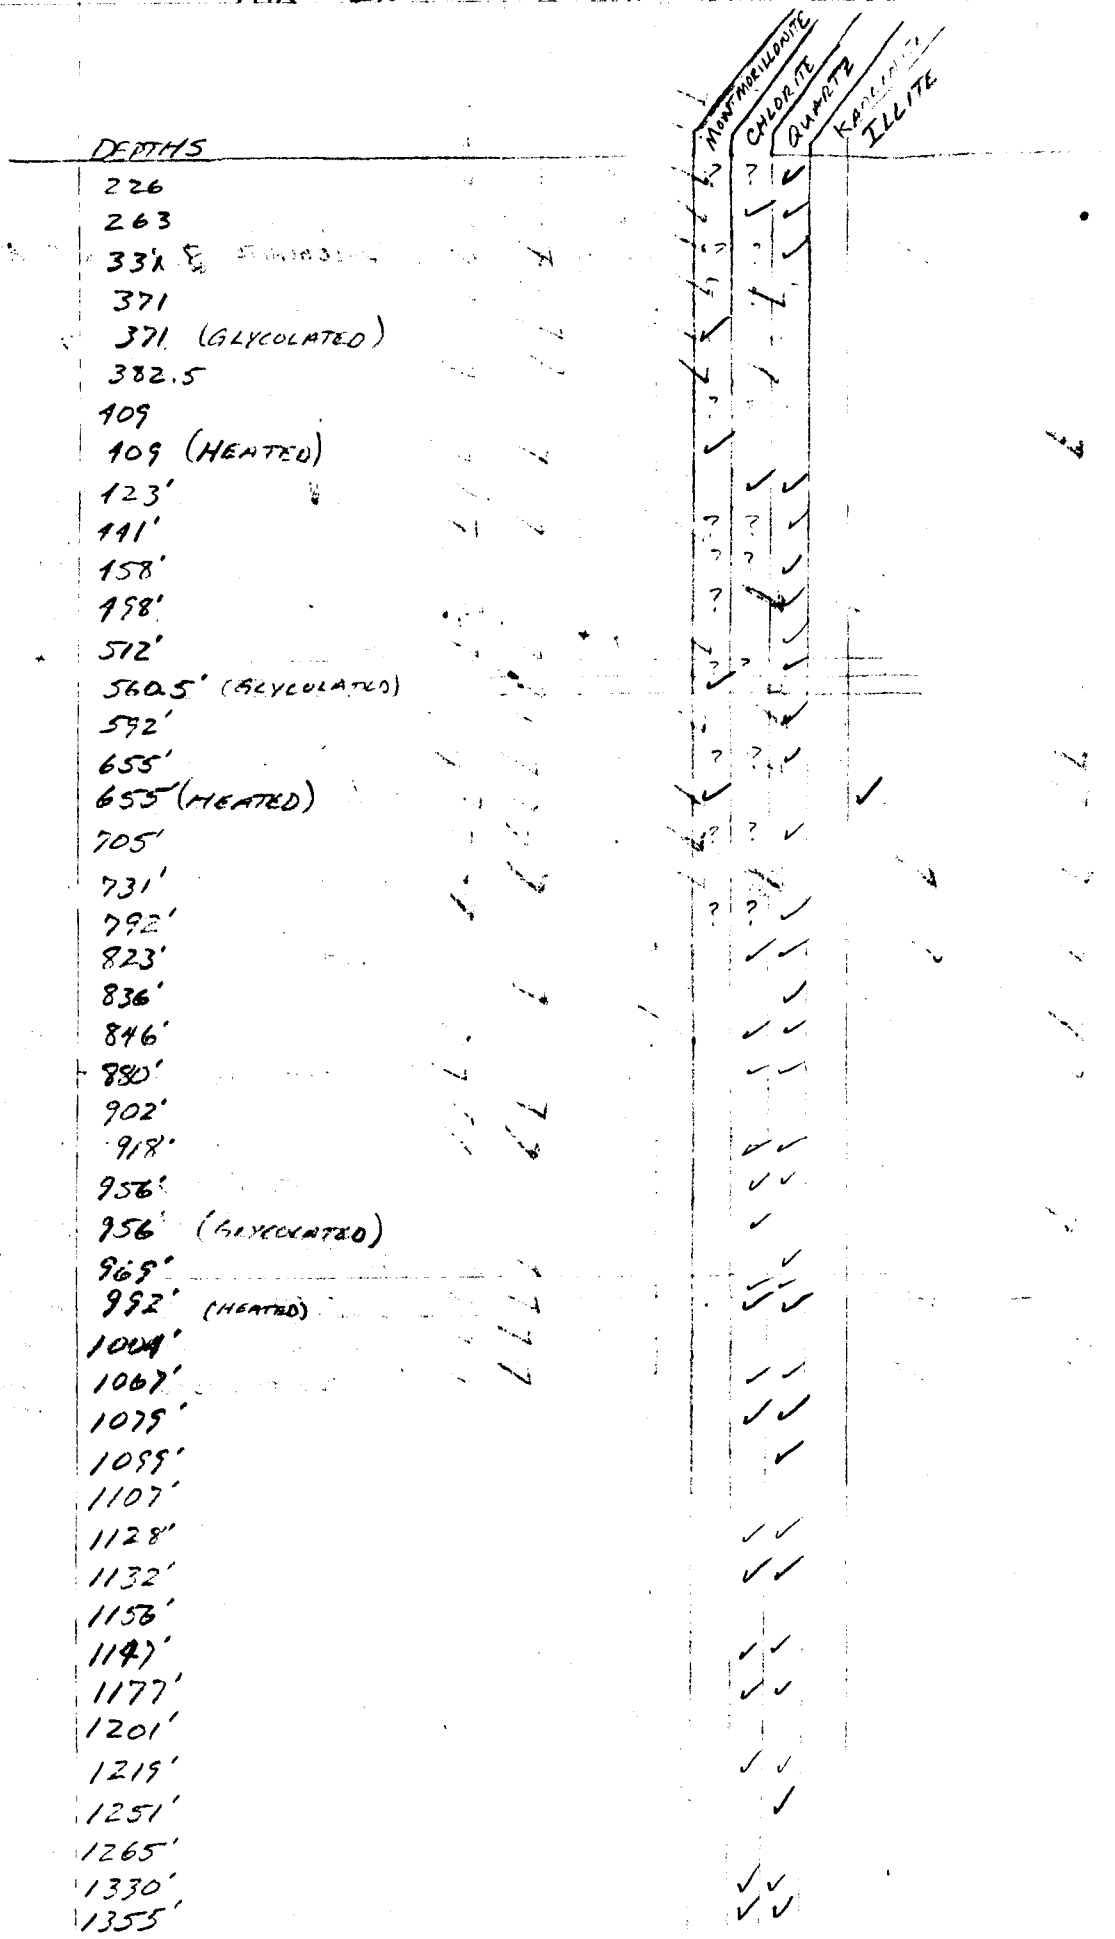 MONTMORILLONITE
CHLORITE
QUARTZ
KAOLINITE
ILLITE
DEPTHS
226 ? ? ✓
263 ✓ ✓
331 ? ✓
371
371 (GLYCOLATED) ✓
382.5
409
409 (HEATED) ✓
423' ✓ ✓
441' ? ? ✓
458' ? ? ✓
498' ? ✓
512' ✓
560.5' (GLYCOLATED) ? ? ✓ ✓
592' ✓
655' ? ? ✓
655 (HEATED) ✓ ✓
705' ? ? ✓
731'
792' ? ? ✓
823' ✓ ✓
836' ✓
846' ✓ ✓
880' ✓ ✓
902'
918' ✓ ✓
956' ✓ ✓
956' (GLYCOLATED) ✓
969' ✓
992' (HEATED) ✓ ✓ ✓ ✓
1004'
1067' ✓ ✓
1079' ✓ ✓
1099' ✓
1107'
1128' ✓ ✓
1132' ✓ ✓
1156'
1147' ✓ ✓
1177' ✓ ✓
1201'
1219' ✓ ✓
1251' ✓
1265'
1330' ✓ ✓
1355' ✓ ✓